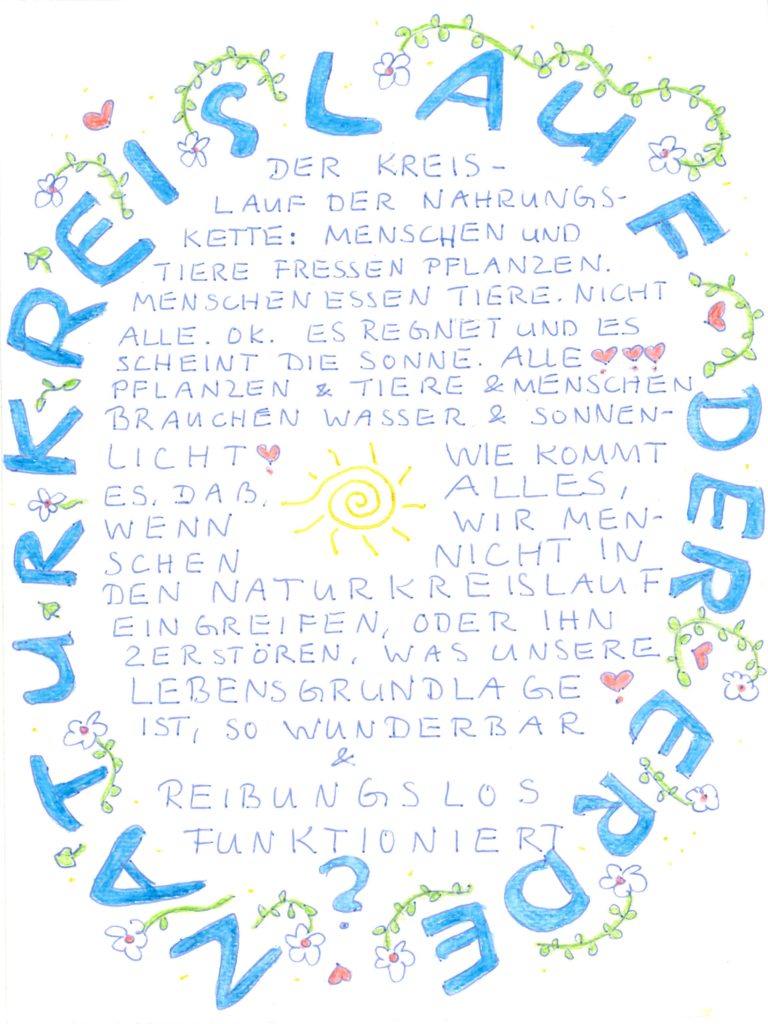 NATURKREISLAUF DER ERDE
DER KREIS-
LAUF DER NAHRUNGS-
KETTE: MENSCHEN UND
TIERE FRESSEN PFLANZEN.
MENSCHEN ESSEN TIERE. NICHT
ALLE. OK. ES REGNET UND ES
SCHEINT DIE SONNE. ALLE
PFLANZEN & TIERE & MENSCHEN
BRAUCHEN WASSER & SONNEN-
LICHT WIE KOMMT
ES, DAß, ALLES,
WENN WIR MEN-
SCHEN NICHT IN
DEN NATURKREISLAUF
EINGREIFEN, ODER IHN
ZERSTÖREN, WAS UNSERE
LEBENSGRUNDLAGE
IST, SO WUNDERBAR
&
REIBUNGSLOS
FUNKTIONIERT
?